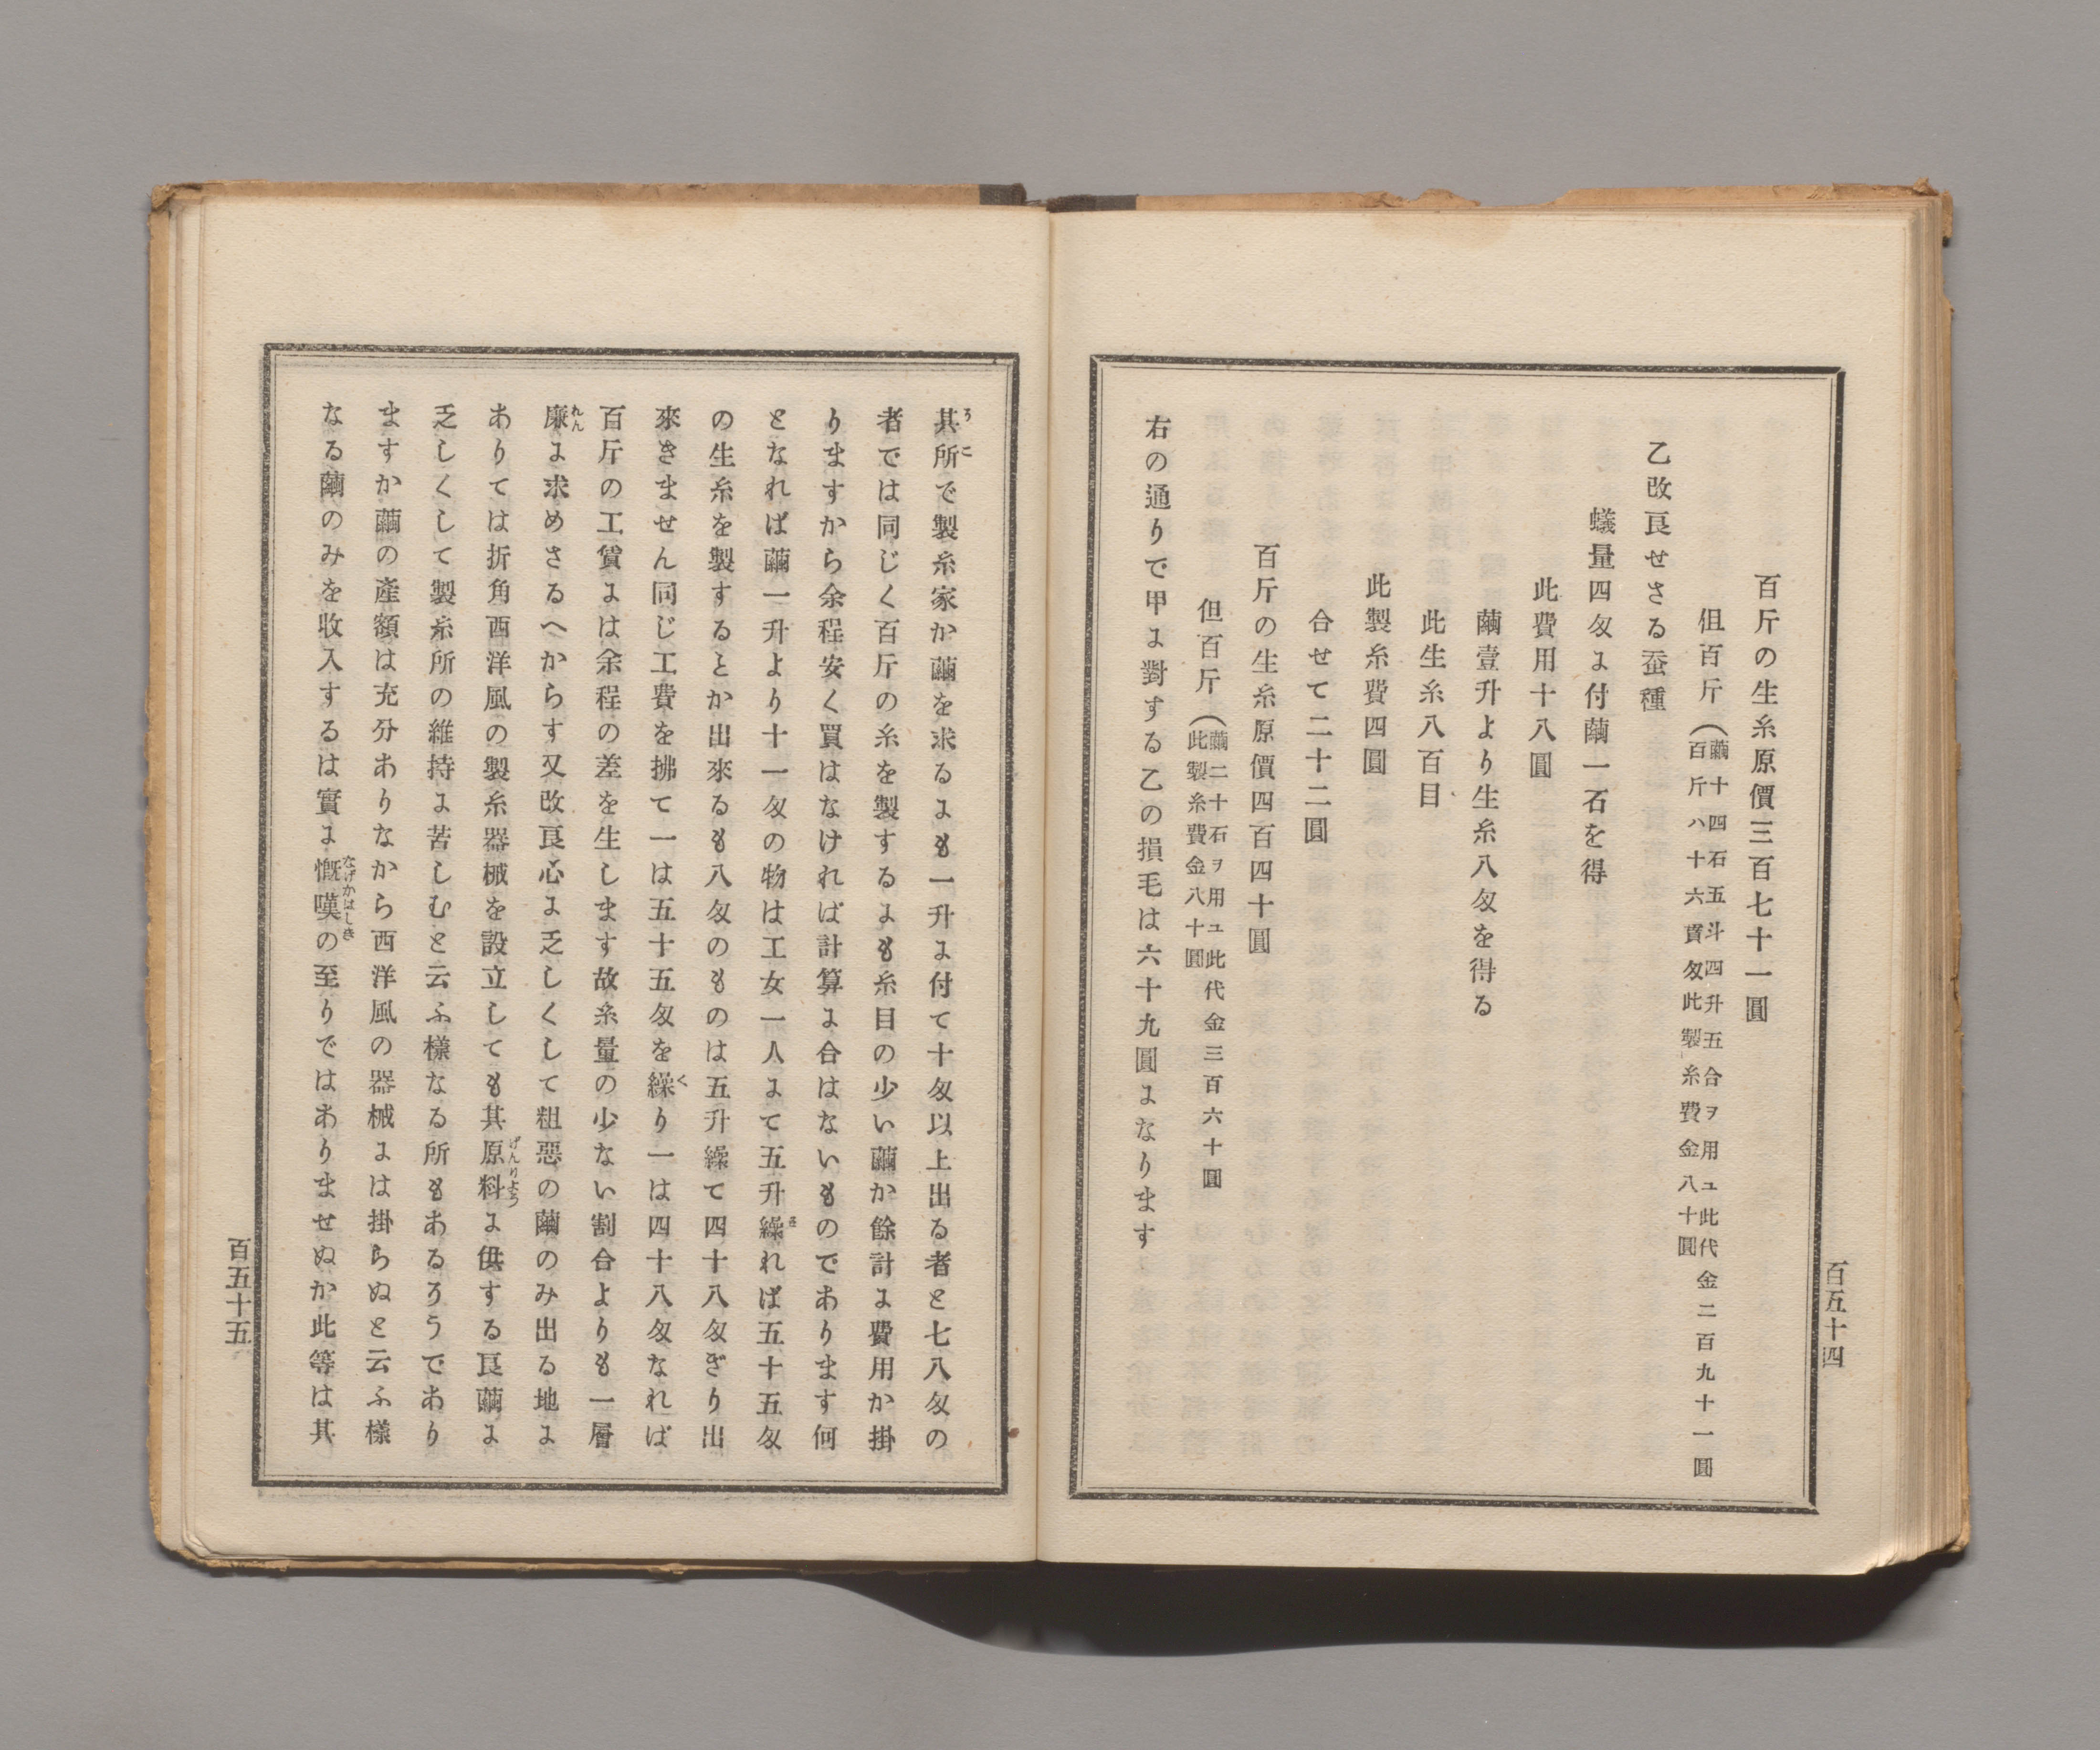 百斤の生糸原價三百七十一圓
但百斤（繭十四石五斗四升五合ヲ用ユ此代金二百九十一圓
百斤ハ十六貫匁此製糸費金八十圓
乙改良せさる蚕種
蟻量四匁に付繭一石を得
此費用十八圓
繭壹升より生糸八匁を得る
此生糸八百目
此製糸費四圓
合せて二十二圓
百斤の生糸原價四百四十圓
但百斤（繭二十石ヲ用ユ此代金三百六十圓
此製糸費金八十圓
右の通りで甲に對する乙の損毛は六十九圓になります
百五十四
其所で製糸家か繭を求るにも一升に付て十匁以上出る者と七八匁の
者では同じく百斤の糸を製するにも糸目の少い繭か餘計に費用か掛
りますから余程安く買はなければ計算に合はないものであります何
となれば繭一升より十一匁の物は工女一人にて五升繰れば五十五匁
の生糸を製するとか出來るも八匁のものは五升繰て四十八匁ぎり出
來きません同じ工費を拂て一は五十五匁を繰り一は四十八匁なれば
百斤の工賃には余程の差を生します故糸量の少ない割合よりも一層
廉に求めさるへからす又改良心に乏しくして粗惡の繭のみ出る地に
ありては折角西洋風の製糸器械を設立しても其原料に供する良繭に
乏しくして製糸所の維持に苦しむと云ふ樣なる所もあるろうであり
ますか繭の產額は充分ありなから西洋風の器械には掛らぬと云ふ樣
なる繭のみを收入するは實に慨嘆の至りではありませぬか此等は其
百五十五